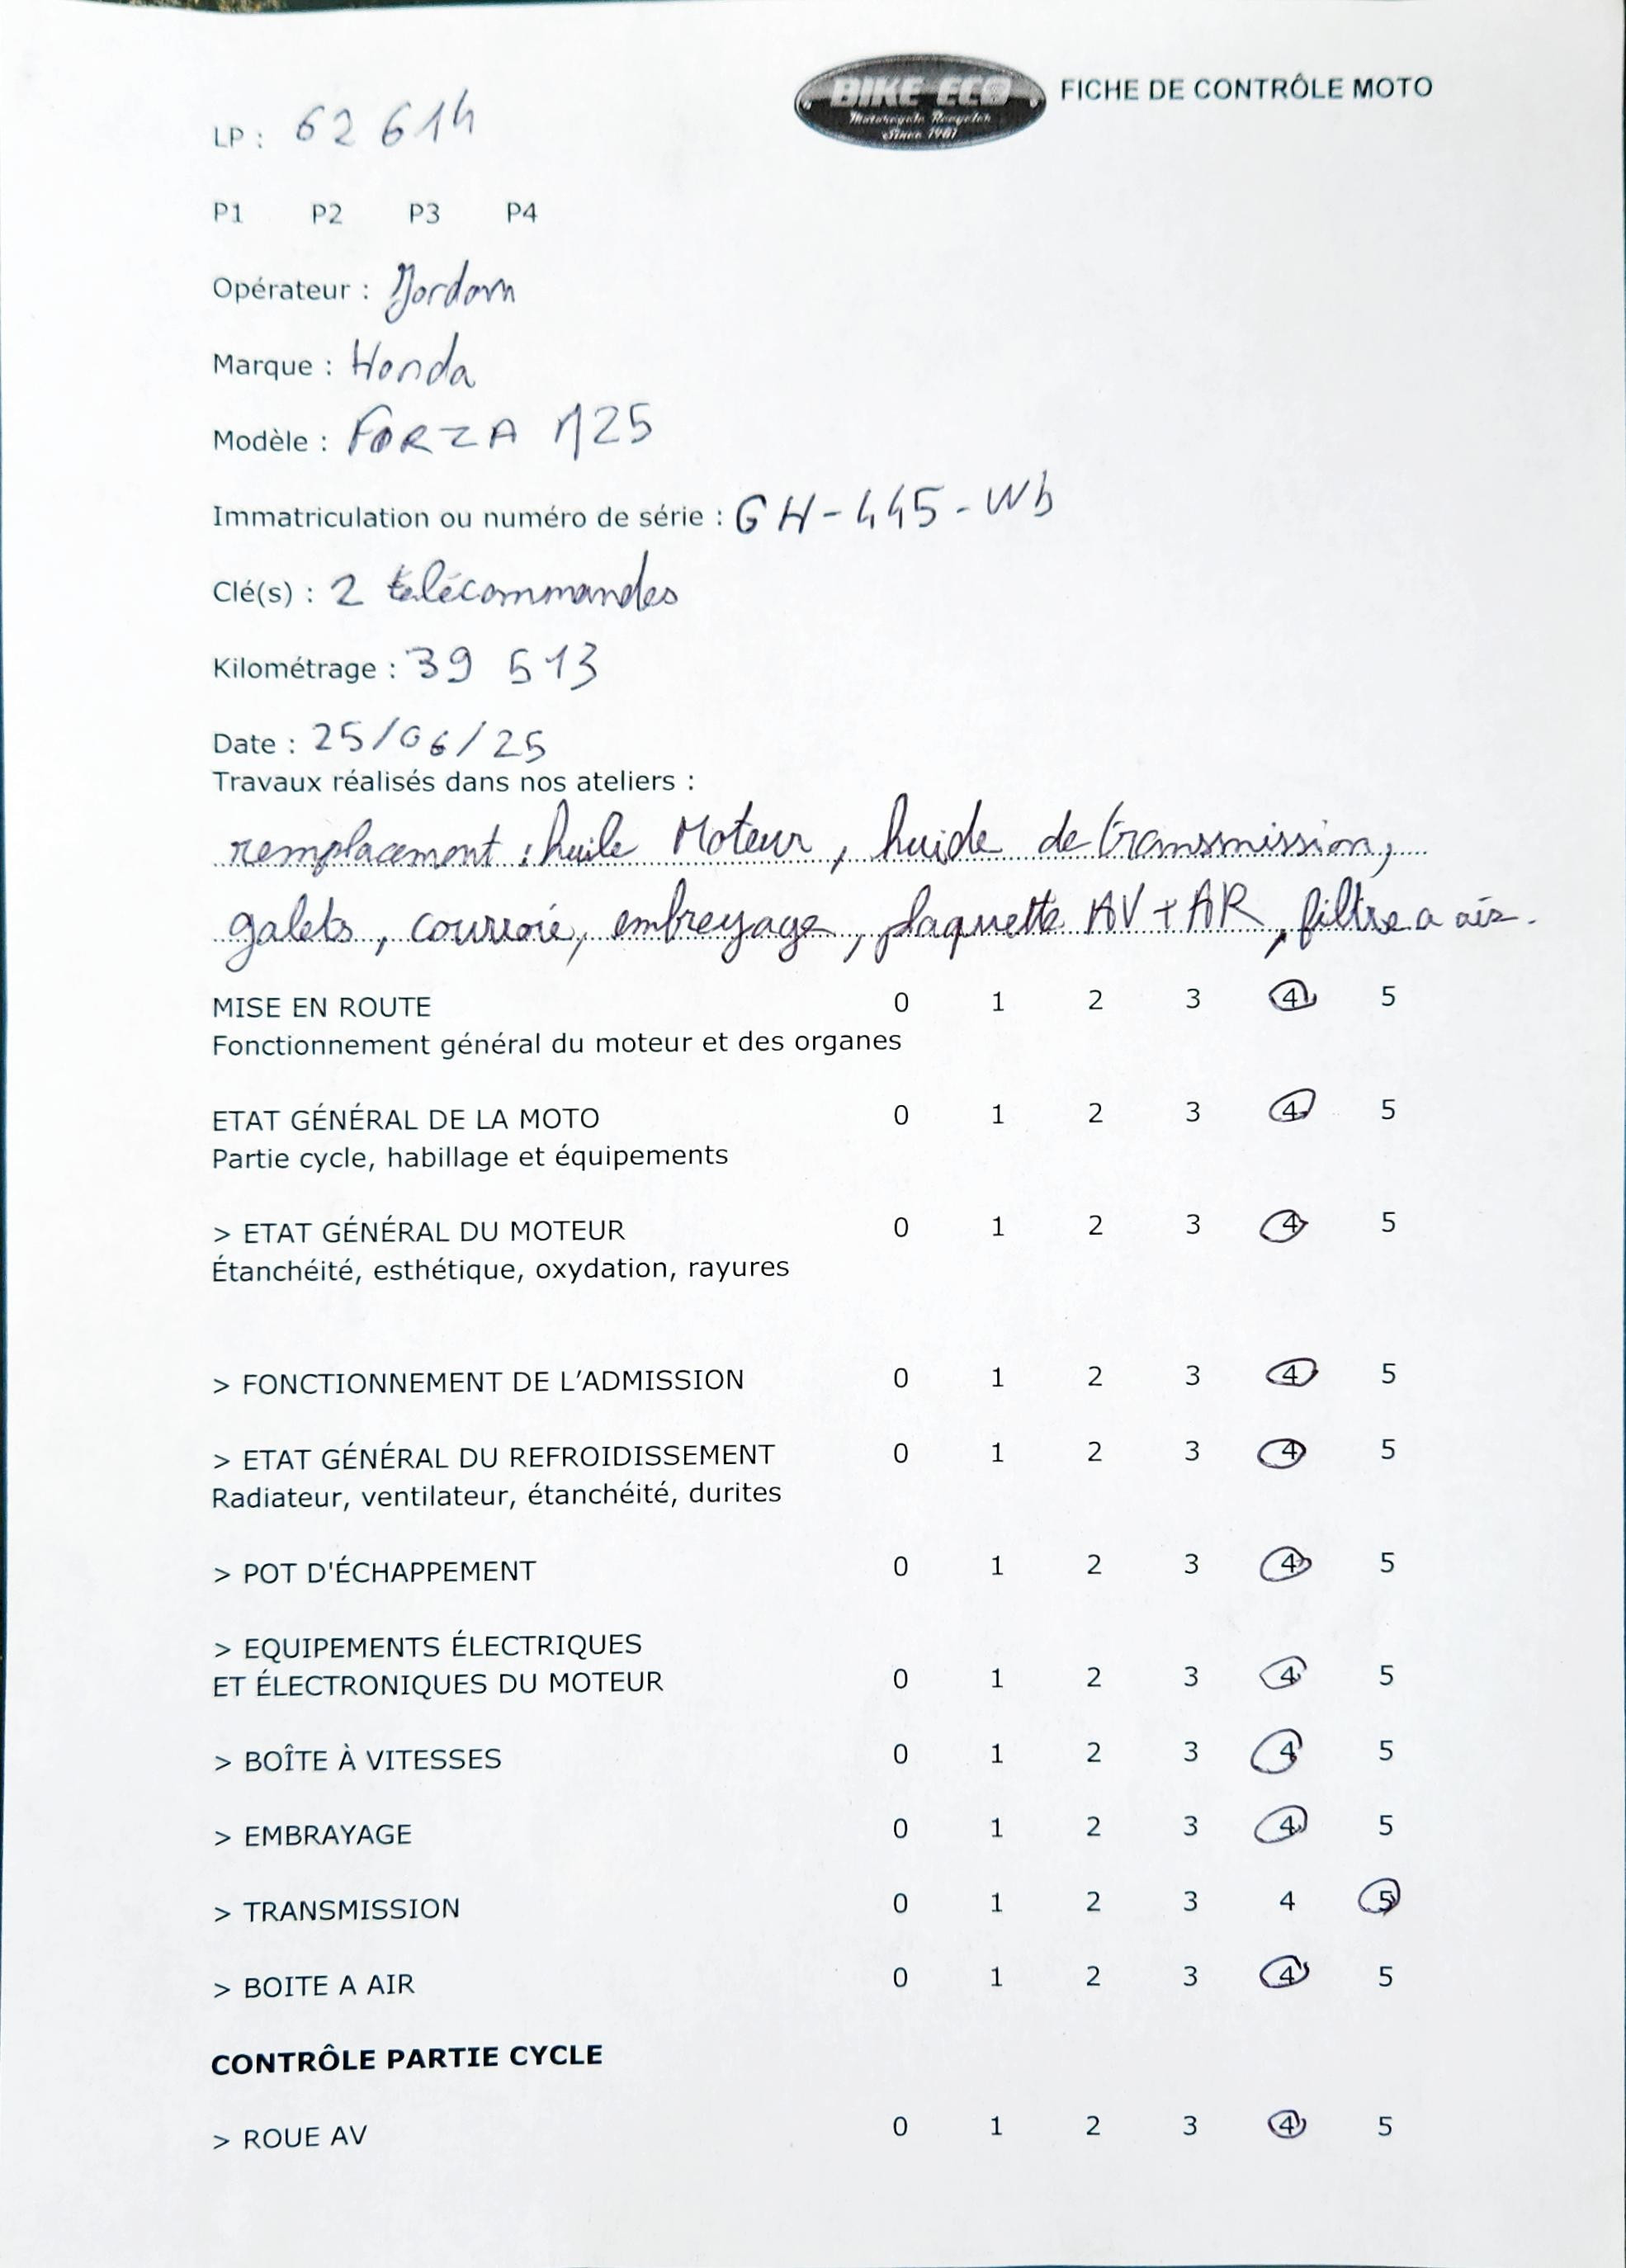 BIKE ECO
Motorcycle Recycler
Since 1981
FICHE DE CONTRÔLE MOTO
LP : 62 614
P1 P2 P3 P4
Opérateur : Jordan
Marque : Honda
Modèle : FORZA 125
Immatriculation ou numéro de série : GH-445-Wb
Clé(s) : 2 télécommandes
Kilométrage : 39 513
Date : 25/06/25
Travaux réalisés dans nos ateliers :
remplacement : huile Moteur, huide de transmission,
galets, courroie, embreyage, plaquette AV+AR, filtre a air.
MISE EN ROUTE 0 1 2 3 4 5
Fonctionnement général du moteur et des organes
ETAT GÉNÉRAL DE LA MOTO 0 1 2 3 4 5
Partie cycle, habillage et équipements
> ETAT GÉNÉRAL DU MOTEUR 0 1 2 3 4 5
Étanchéité, esthétique, oxydation, rayures
> FONCTIONNEMENT DE L'ADMISSION 0 1 2 3 4 5
> ETAT GÉNÉRAL DU REFROIDISSEMENT 0 1 2 3 4 5
Radiateur, ventilateur, étanchéité, durites
> POT D'ÉCHAPPEMENT 0 1 2 3 4 5
> EQUIPEMENTS ÉLECTRIQUES
ET ÉLECTRONIQUES DU MOTEUR 0 1 2 3 4 5
> BOÎTE À VITESSES 0 1 2 3 4 5
> EMBRAYAGE 0 1 2 3 4 5
> TRANSMISSION 0 1 2 3 4 5
> BOITE A AIR 0 1 2 3 4 5
CONTRÔLE PARTIE CYCLE
> ROUE AV 0 1 2 3 4 5